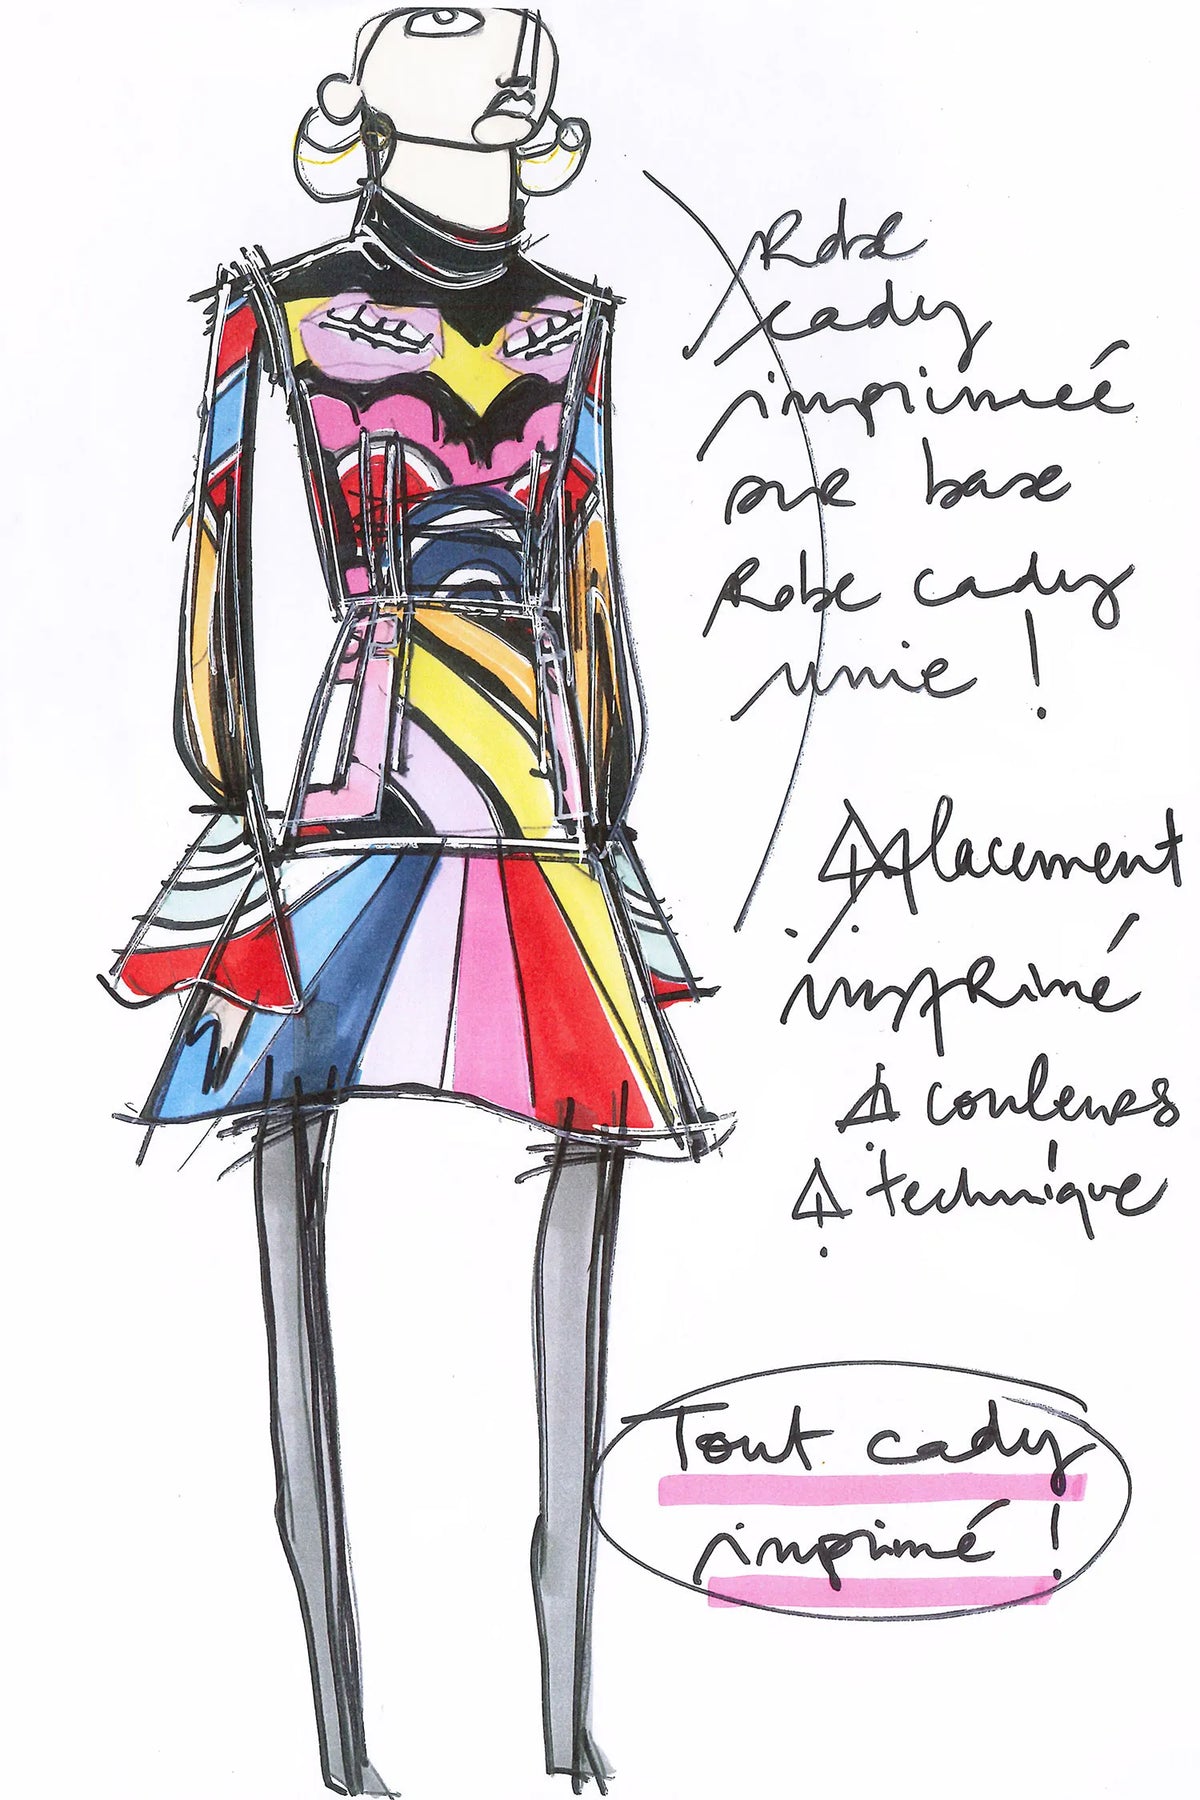 Robe
cady
imprimeé
sur base
Robe cady
unie !
placement
imprimé
couleurs
technique
Tout cady
imprimé !